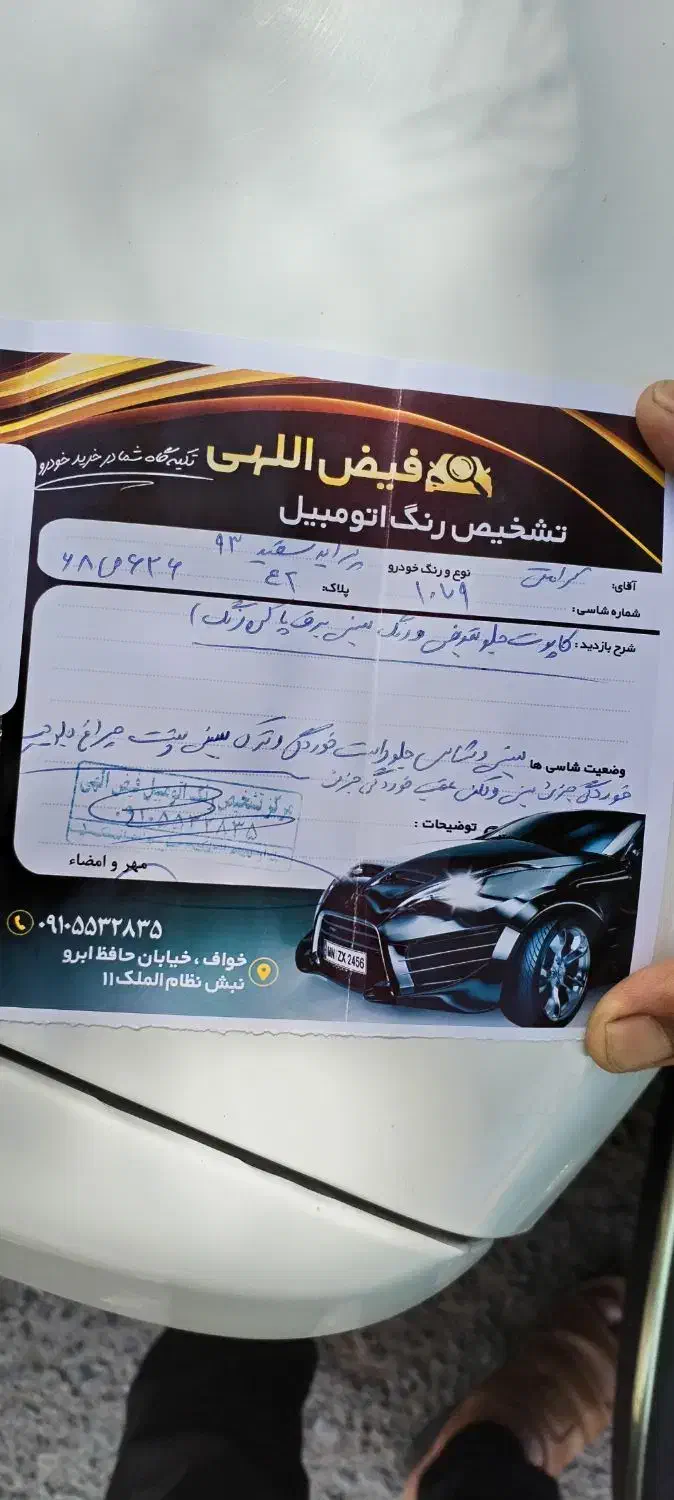 فیض اللهی
تکیه گاه شما در خرید خودرو
تشخیص رنگ اتومبیل
آقای: کرامتی نوع و رنگ خودرو پراید سفید ۹۳
شماره شاسی: ۱۰۷۹ پلاک:
شرح بازدید: کاپوت جلو تعویض و رنگ
وضعیت شاسی ها سینی و شاسی جلو راست خوردگی و ترک سینی پشت چراغ
خوردگی جزئی سینی عقب خوردگی جزئی
توضیحات :
مرکز تشخیص رنگ اتومبیل فیض الهی
۰۹۱۰۵۵۳۲۸۳۵
مهر و امضاء
۰۹۱۰۵۵۳۲۸۳۵
خواف ، خیابان حافظ ابرو
نبش نظام الملک ۱۱
MN ZX 2456